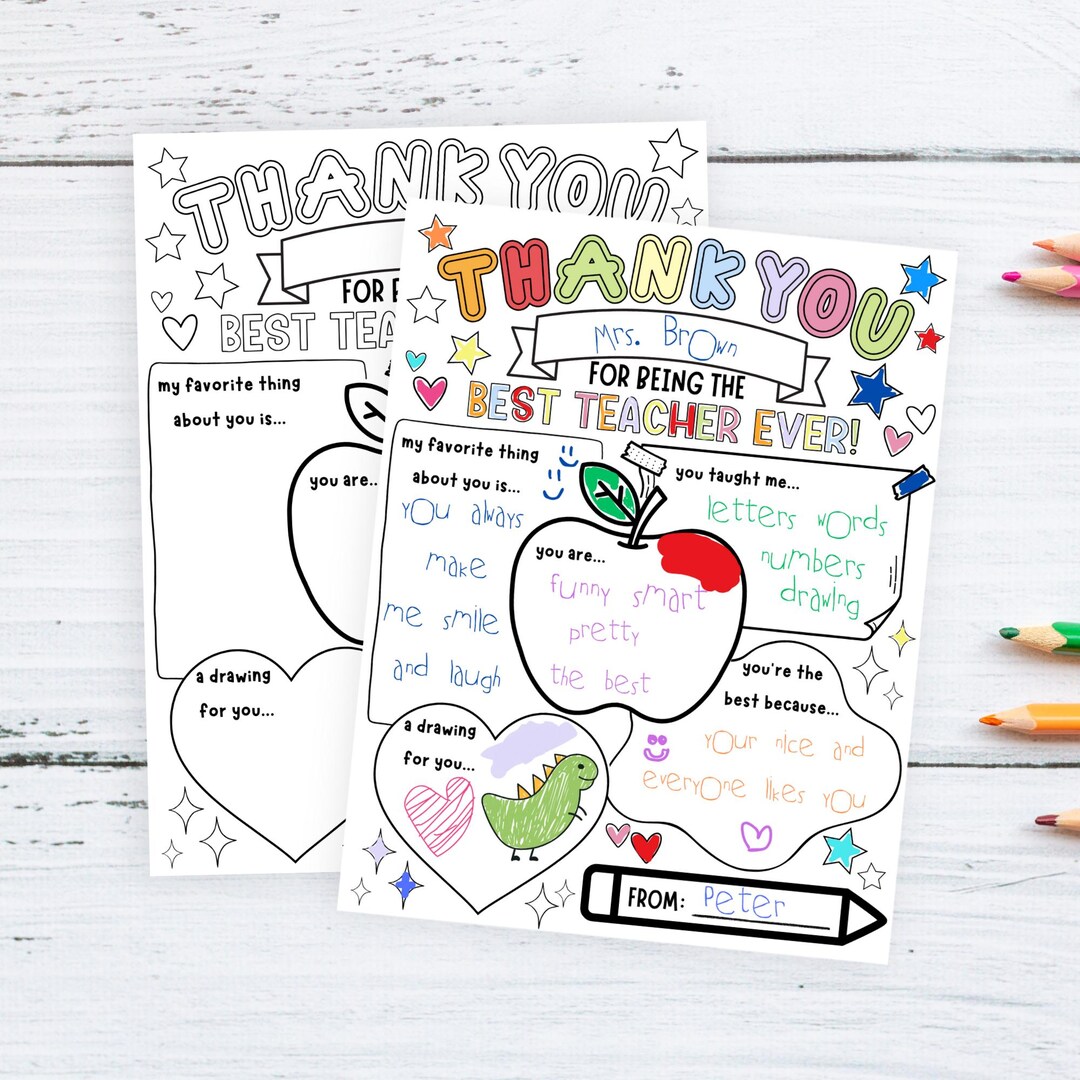 THANK YOU
FOR
BEST TEA
my favorite thing
about you is...
you are..
a drawing
for you...
THANK YOU
Mrs. Brown
FOR BEING THE
BEST TEACHER EVER!
my favorite thing
about you is...
you always
make
me smile
and laugh
you taught me...
letters words
numbers
drawing
you are...
funny smart
pretty
the best
you're the
best because...
your nice and
everyone likes you
a drawing
for you...
FROM: Peter